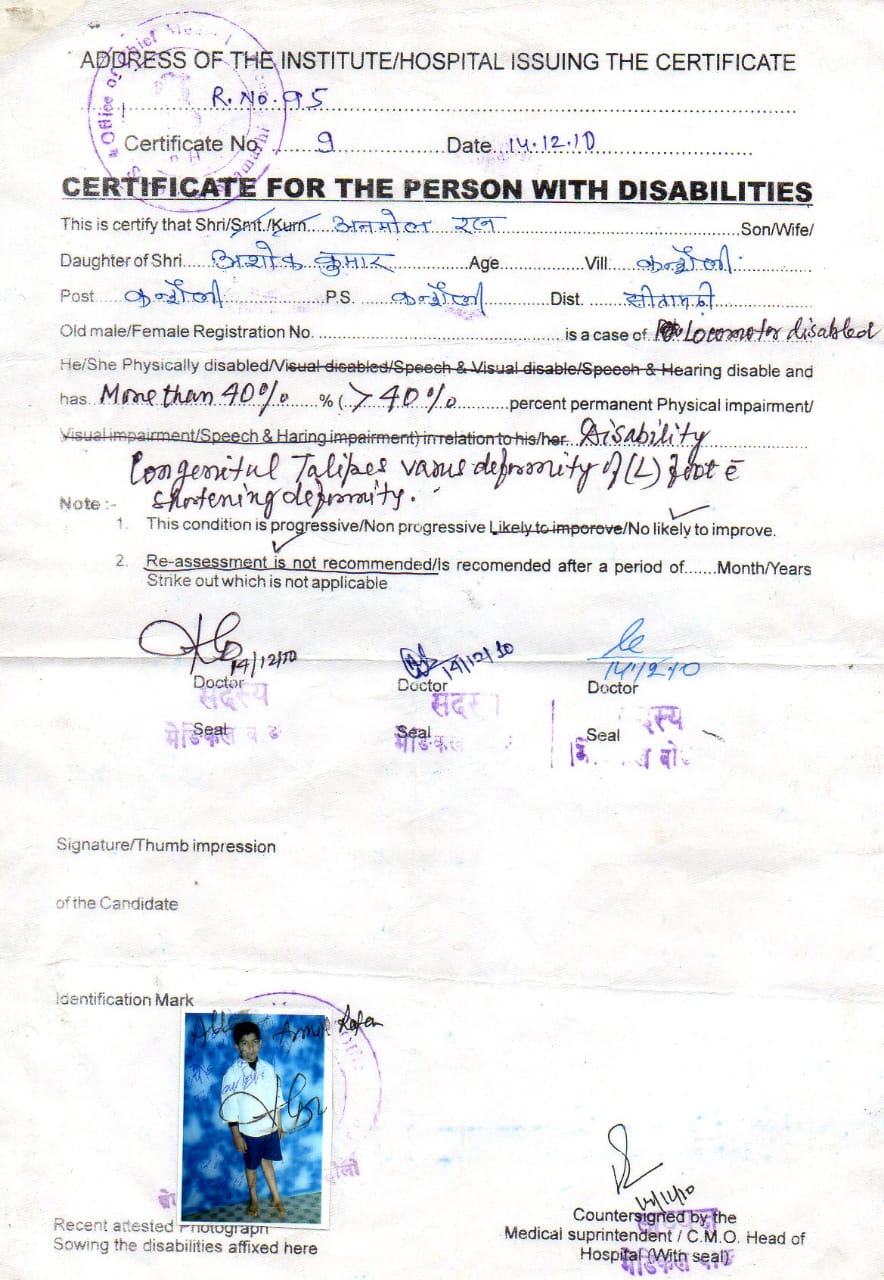 ADDRESS OF THE INSTITUTE/HOSPITAL ISSUING THE CERTIFICATE
R.No. 95
Certificate No. 9 Date 14.12.10
CERTIFICATE FOR THE PERSON WITH DISABILITIES
This is certify that Shri/Smt./Kum. अनमोल रत्न Son/Wife/
Daughter of Shri अशोक कुमार Age Vill कन्हौली
Post कन्हौली P.S. कन्हौली Dist. सीतामढ़ी
Old male/Female Registration No. is a case of Locomotor disabled
He/She Physically disabled/Visual disabled/Speech & Visual disable/Speech & Hearing disable and
has More than 40% % (>40% percent permanent Physical impairment/
Visual impairment/Speech & Haring impairment) in relation to his/her Disability
Congenital Talipes varus deformity of (L) foot c̄
shortening deformity.
Note :-
1. This condition is progressive/Non progressive Likely to imporove/No likely to improve.
2. Re-assessment is not recommended/Is recomended after a period of.......Month/Years
Strike out which is not applicable
14/12/10 14/12/10 14.12.10
Doctor Doctor Doctor
सदस्य सदस्य
Seal Seal Seal
मेडिकल मेडिकल
Signature/Thumb impression
of the Candidate
Identification Mark
Recent attested Photograph
Sowing the disabilities affixed here
Countersigned by the
Medical suprintendent / C.M.O. Head of
Hospital (With seal)
मेडिकल